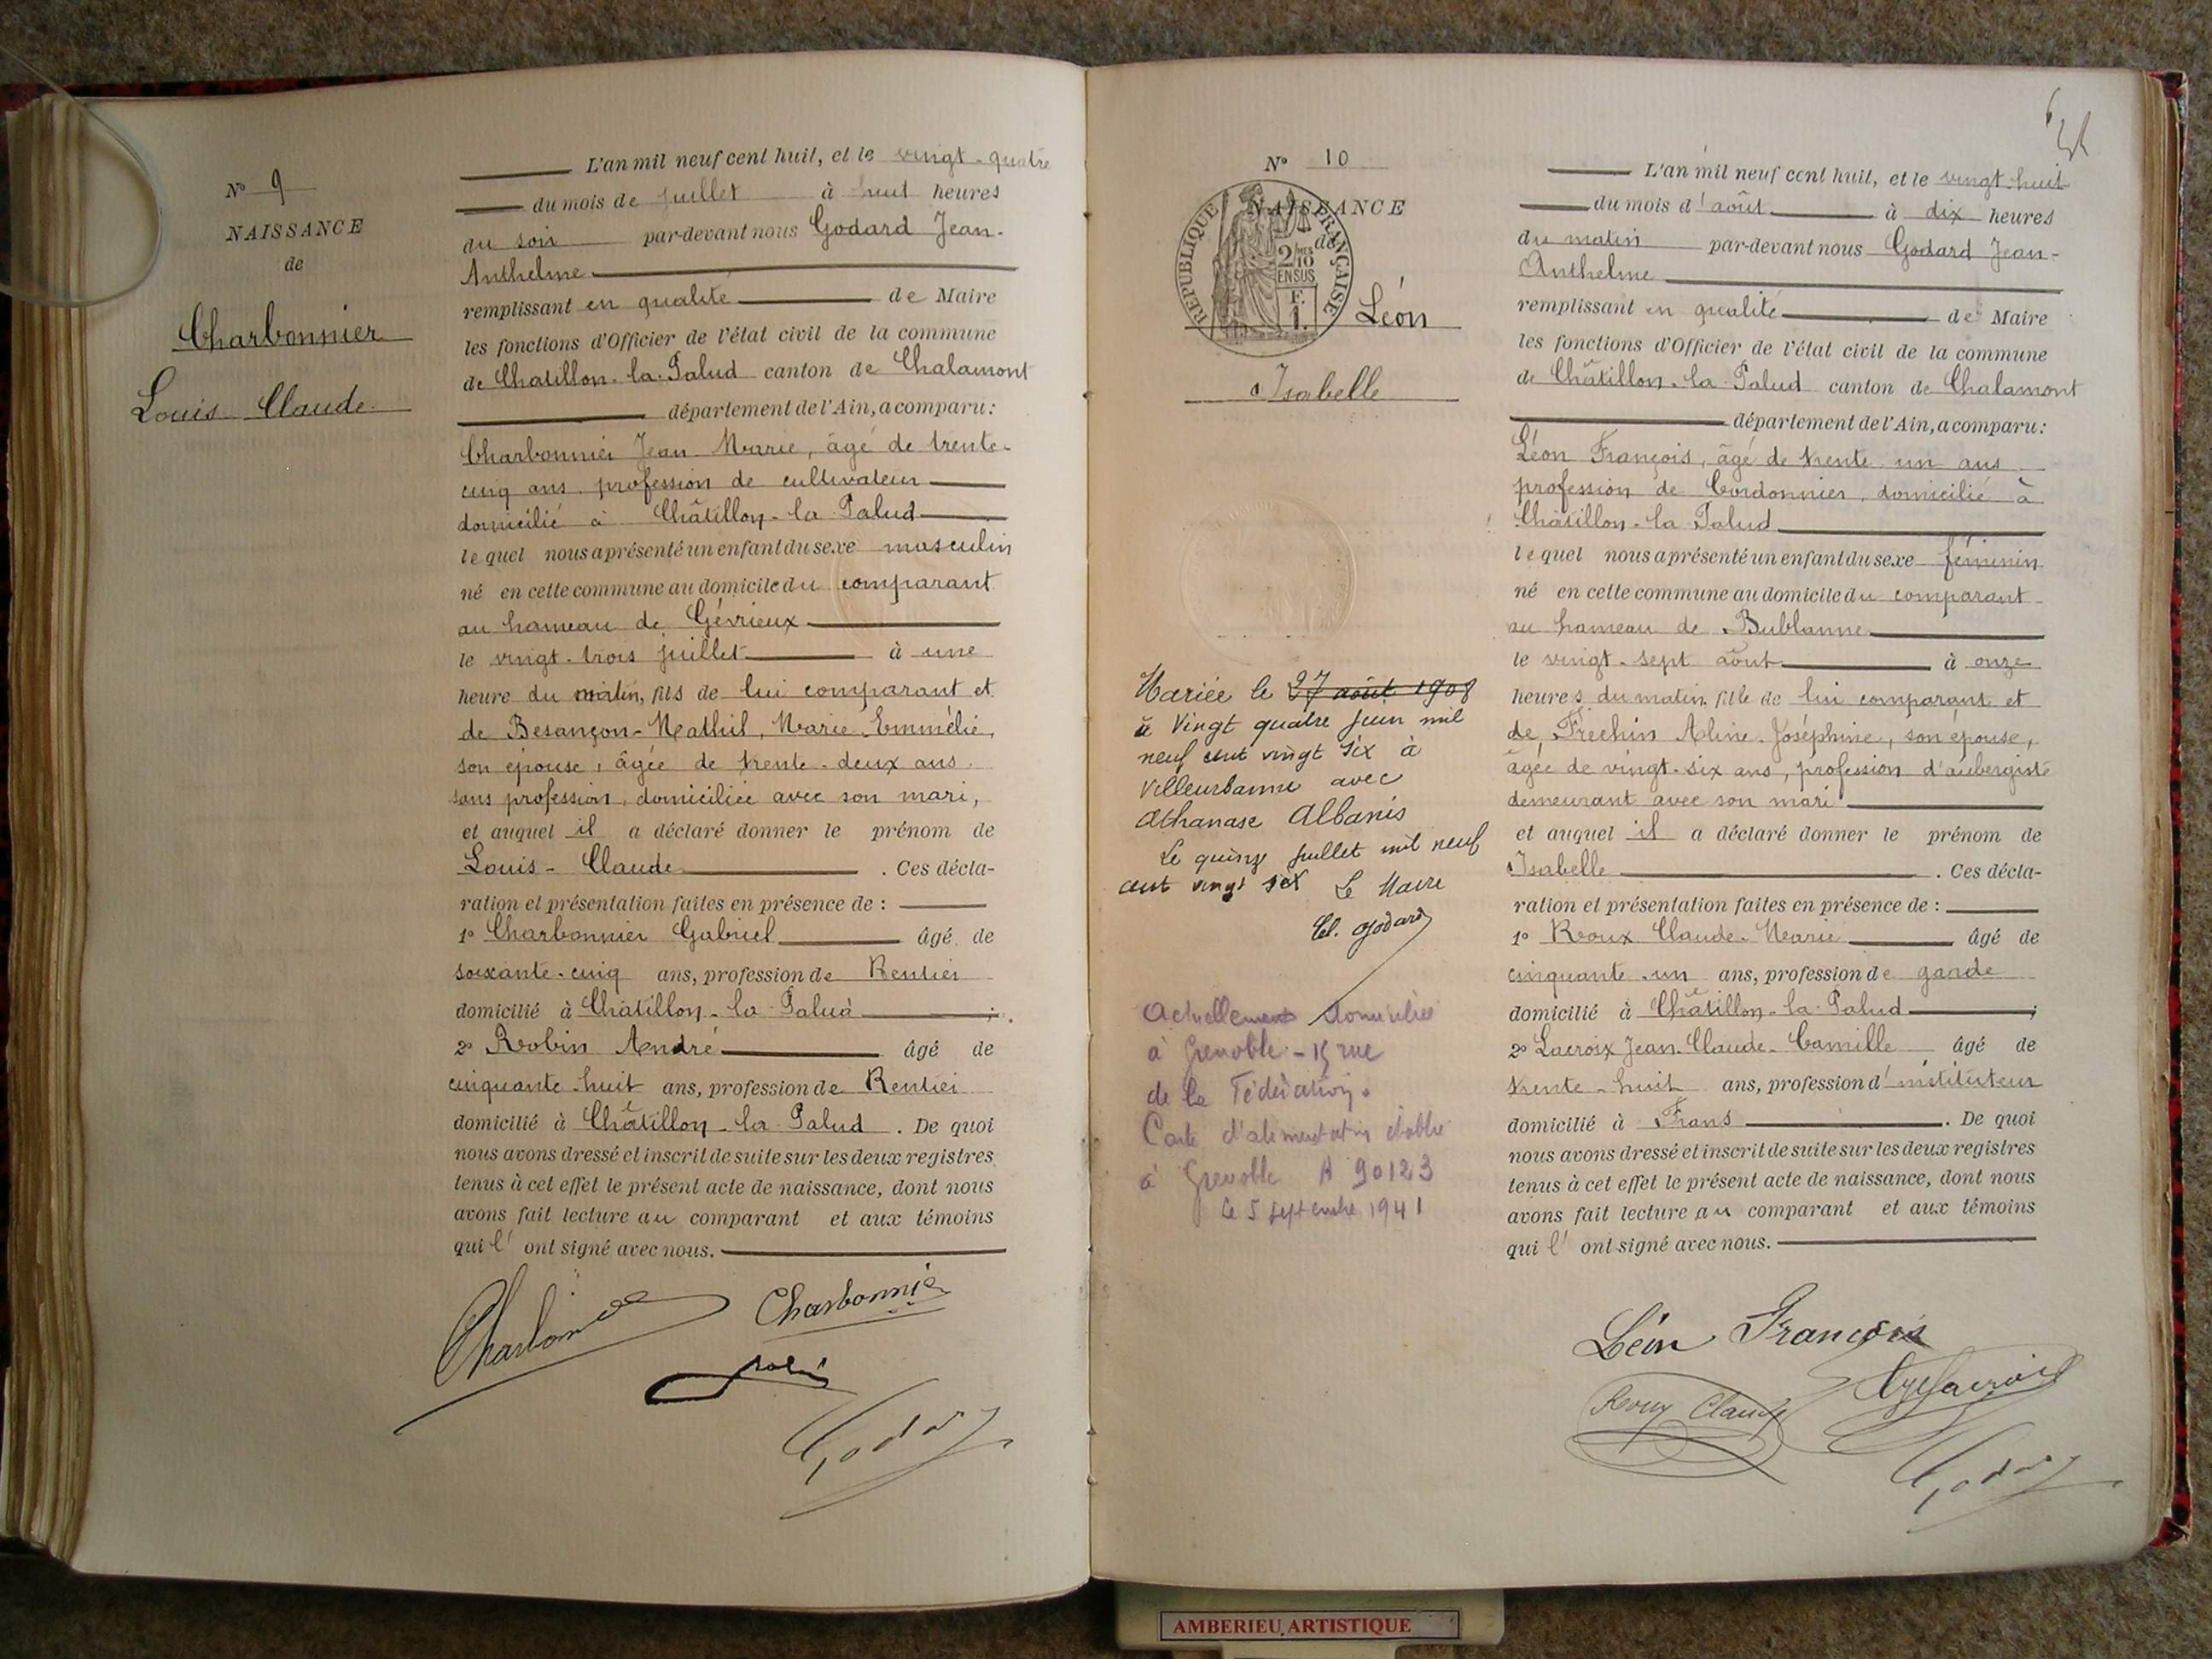 Nº 9
NAISSANCE
de
Charbonnier
Louis Claude
L'an mil neuf cent huit, et le vingt-quatre
du mois de juillet à huit heures
du soir par-devant nous Godard Jean-
Anthelme
remplissant en qualité de Maire
les fonctions d'Officier de l'état civil de la commune
de Chatillon-la-Palud canton de Chalamont
département de l'Ain, a comparu:
Charbonnier Jean-Marie, âgé de trente-
cinq ans profession de cultivateur
domicilié à Châtillon-la-Palud
lequel nous a présenté un enfant du sexe masculin
né en cette commune au domicile du comparant
au hameau de Gévrieux
le vingt-trois juillet à une
heure du matin, fils de lui comparant et
de Besançon-Mathil, Marie-Emmélie,
son épouse, âgée de trente-deux ans.
sans profession, domiciliée avec son mari,
et auquel il a déclaré donner le prénom de
Louis-Claude. Ces décla-
ration et présentation faites en présence de :
1º Charbonnier Gabriel âgé de
soixante-cinq ans, profession de Rentier
domicilié à Châtillon-la-Palud ;
2º Robin André âgé de
cinquante-huit ans, profession de Rentier
domicilié à Châtillon-la-Palud. De quoi
nous avons dressé et inscrit de suite sur les deux registres
tenus à cet effet le présent acte de naissance, dont nous
avons fait lecture au comparant et aux témoins
qui l'ont signé avec nous.
Charbonnier
Robin
Godard
Nº 10
NAISSANCE
de
REPUBLIQUE FRANÇAISE
2/10
EN SUS
F.
1.
Léon
Isabelle
Mariée le 27 août 1908
le Vingt quatre juin mil
neuf cent vingt six à
Villeurbanne avec
Athanase Albanis
Le quinze juillet mil neuf
cent vingt six Le Maire
Cl. Godard
Actuellement domiciliée
à Grenoble - 15 rue
de la Fédération.
Carte d'alimentation établie
à Grenoble A 90123
le 5 septembre 1941
L'an mil neuf cent huit, et le vingt-huit
du mois d'août à dix heures
du matin par-devant nous Godard Jean-
Anthelme
remplissant en qualité de Maire
les fonctions d'Officier de l'état civil de la commune
de Châtillon-la-Palud canton de Chalamont
département de l'Ain, a comparu:
Léon François, âgé de trente-un ans
profession de Cordonnier, domicilié à
Châtillon-la-Palud
lequel nous a présenté un enfant du sexe féminin
né en cette commune au domicile du comparant
au hameau de Bublanne
le vingt-sept août à onze
heures du matin, fille de lui comparant et
de Fréchin Aline-Joséphine, son épouse,
âgée de vingt-six ans, profession d'aubergiste
demeurant avec son mari
et auquel il a déclaré donner le prénom de
Isabelle. Ces décla-
ration et présentation faites en présence de :
1º Roux Claude-Marie âgé de
cinquante-un ans, profession de garde
domicilié à Châtillon-la-Palud ;
2º Lacroix Jean-Claude-Camille âgé de
trente-huit ans, profession d'instituteur
domicilié à Frans. De quoi
nous avons dressé et inscrit de suite sur les deux registres
tenus à cet effet le présent acte de naissance, dont nous
avons fait lecture au comparant et aux témoins
qui l'ont signé avec nous.
Léon François
Roux Claude
Lacroix
Godard
AMBERIEU ARTISTIQUE